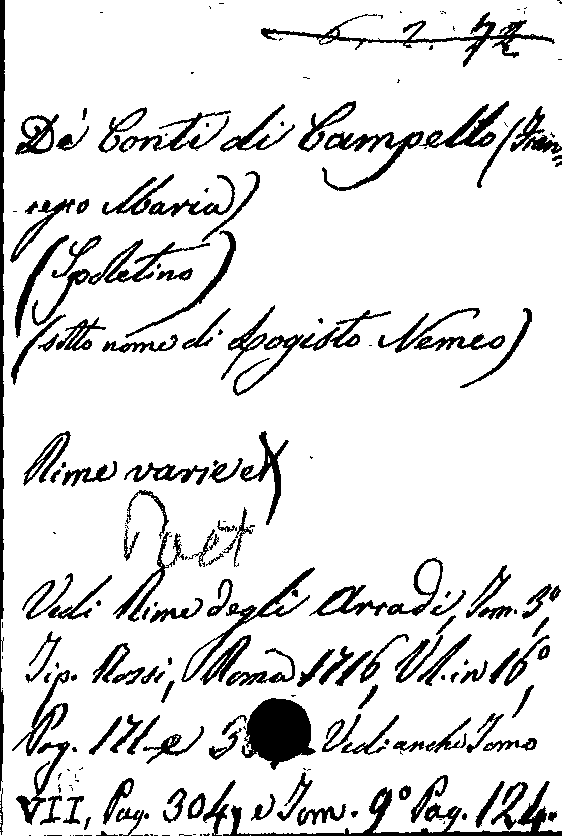 6. 2. 72
De' Conti di Campello (Fran-
cesco Maria)
(Spoletino)
(sotto nome di Logisto Nemeo)
Rime varie
Poet
Vedi Rime degli Arcadi, Tom. 3º,
Tip. Rossi, Roma 1716, Vol. in 16º,
Pag. 171 e Vedi anche Tomo
VII, Pag. 304, e Tom. 9º Pag. 124.